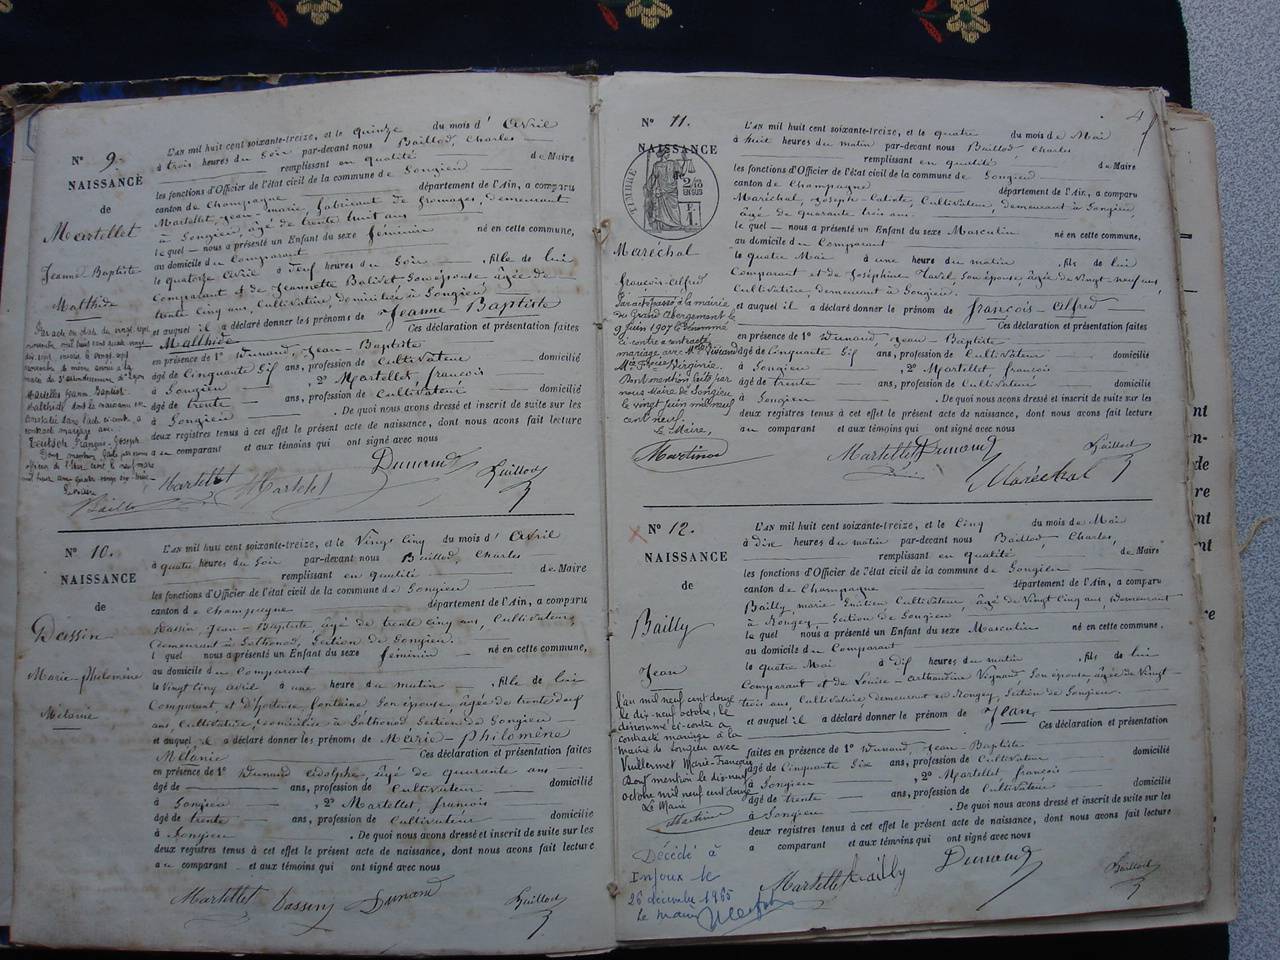 N° 9.
NAISSANCE
de
Martellet
Jeanne Baptiste
Mathilde
L'AN mil huit cent soixante-treize, et le quinze du mois d'Avril
à trois heures du Soir par-devant nous Baillod, Charles
remplissant en qualité de Maire
les fonctions d'Officier de l'état civil de la commune de Songieu
canton de Champagne département de l'Ain, a comparu
Martellet, Jean-Marie, fabricant de fromages, demeurant
à Songieu, âgé de trente huit ans
le quel nous a présenté un Enfant du sexe féminin né en cette commune,
au domicile du Comparant
le quatorze Avril à neuf heures du Soir, fille de lui
Comparant & de Jeannette Bolivet, Son épouse, âgée de
trente cinq ans, Cultivatrice, domiciliée à Songieu
et auquel il a déclaré donner les prénoms de Jeanne-Baptiste
Mathilde Ces déclaration et présentation faites
en présence de 1° Dunand, Jean-Baptiste
âgé de Cinquante Six ans, profession de Cultivateur domicilié
à Songieu, 2° Martellet, françois
âgé de trente ans, profession de Cultivateur domicilié
à Songieu. De quoi nous avons dressé et inscrit de suite sur les
deux registres tenus à cet effet le présent acte de naissance, dont nous avons fait lecture
au comparant et aux témoins qui ont signé avec nous
Martellet Martellet Dunand Baillod
N° 10.
NAISSANCE
de
Dassin
Marie-Philomène
Mélanie
L'AN mil huit cent soixante-treize, et le Vingt Cinq du mois d'Avril
à quatre heures du Soir par-devant nous Baillod, Charles
remplissant en qualité de Maire
les fonctions d'Officier de l'état civil de la commune de Songieu
canton de Champagne département de l'Ain, a comparu
Dassin, Jean-Baptiste, âgé de trente cinq ans, Cultivateur,
demeurant à Sothonod, Section de Songieu.
lequel nous a présenté un Enfant du sexe féminin né en cette commune,
au domicile du Comparant
le Vingt Cinq Avril à une heure du matin, fille de lui
Comparant et d'hortense fontaine Son épouse, âgée de trente neuf
ans, Cultivatrice, domiciliée à Sothonod Section de Songieu
et auquel il a déclaré donner les prénoms de Marie-Philomène
Mélanie Ces déclaration et présentation faites
en présence de 1° Dunand Adolphe, âgé de quarante ans
âgé de ans, profession de Cultivateur domicilié
à Songieu, 2° Martellet, françois
âgé de trente ans, profession de Cultivateur domicilié
à Songieu. De quoi nous avons dressé et inscrit de suite sur les
deux registres tenus à cet effet le présent acte de naissance, dont nous avons fait lecture
au comparant et aux témoins qui ont signé avec nous
Martellet Dassin Dunand Baillod
4
N° 11.
NAISSANCE
TIMBRE
2/10
EN SUS
1 F
Maréchal
françois-Alfred
Par acte passé à la mairie
du Grand Abergement le
9 Juin 1907 le dénommé
ci-contre a contracté
mariage avec Mlle Vivian
Mie Louise Virginie.
Dont mention faite par
nous Maire de Songieu
le vingt Juin mil neuf
cent neuf
Le Maire,
Martinod
L'AN mil huit cent soixante-treize, et le quatre du mois de Mai
à huit heures du matin par-devant nous Baillod, Charles
remplissant en qualité de Maire
les fonctions d'Officier de l'état civil de la commune de Songieu
canton de Champagne département de l'Ain, a comparu
Maréchal, Joseph-Calixte, Cultivateur, demeurant à Songieu
âgé de quarante trois ans.
le quel nous a présenté un Enfant du sexe Masculin né en cette commune,
au domicile du Comparant
le quatre Mai à une heure du matin, fils de lui
Comparant et de Joséphine Travel, Son épouse, âgée de Vingt-neuf ans,
Cultivatrice, demeurant à Songieu.
et auquel il a déclaré donner le prénom de françois-Alfred
Ces déclaration et présentation faites
en présence de 1° Dunand, Jean-Baptiste
âgé de Cinquante Six ans, profession de Cultivateur domicilié
à Songieu, 2° Martellet, françois
âgé de trente ans, profession de Cultivateur domicilié
à Songieu. De quoi nous avons dressé et inscrit de suite sur les
deux registres tenus à cet effet le présent acte de naissance, dont nous avons fait lecture
au comparant et aux témoins qui ont signé avec nous
Martellet Dunand Maréchal Baillod
N° 12.
NAISSANCE
de
Bailly
Jean
L'an mil neuf cent douze
le dix-neuf octobre, le
dénommé ci-contre a
contracté mariage à la
mairie de Songieu avec
Vuillermet Marie-François
Dont mention le dix-neuf
octobre mil neuf cent douze
Le Maire
Martinod
Décédé à
Injoux le
26 décembre 1965
Le maire
L'AN mil huit cent soixante-treize, et le Cinq du mois de Mai
à dix heures du matin par-devant nous Baillod, Charles,
remplissant en qualité de Maire
les fonctions d'Officier de l'état civil de la commune de Songieu
canton de Champagne département de l'Ain, a comparu
Bailly, marie Cultivateur, âgé de Vingt Cinq ans, demeurant
à Rongey, Section de Songieu
le quel nous a présenté un Enfant du sexe Masculin né en cette commune,
au domicile du Comparant
le quatre Mai à dix heures du matin, fils de lui
Comparant et de Louise-Arthaudine Vignand, Son épouse, âgée de Vingt-
trois ans, Cultivatrice demeurant en Rongey, Section de Songieu.
et auquel il a déclaré donner le prénom de Jean,
Ces déclaration et présentation
faites en présence de 1° Dunand, Jean-Baptiste
âgé de Cinquante Six ans, profession de Cultivateur domicilié
à Songieu, 2° Martellet, françois
âgé de trente ans, profession de Cultivateur domicilié
à Songieu. De quoi nous avons dressé et inscrit de suite sur les
deux registres tenus à cet effet le présent acte de naissance, dont nous avons fait lecture
au comparant et aux témoins qui ont signé avec nous
Martellet Bailly Dunand Baillod